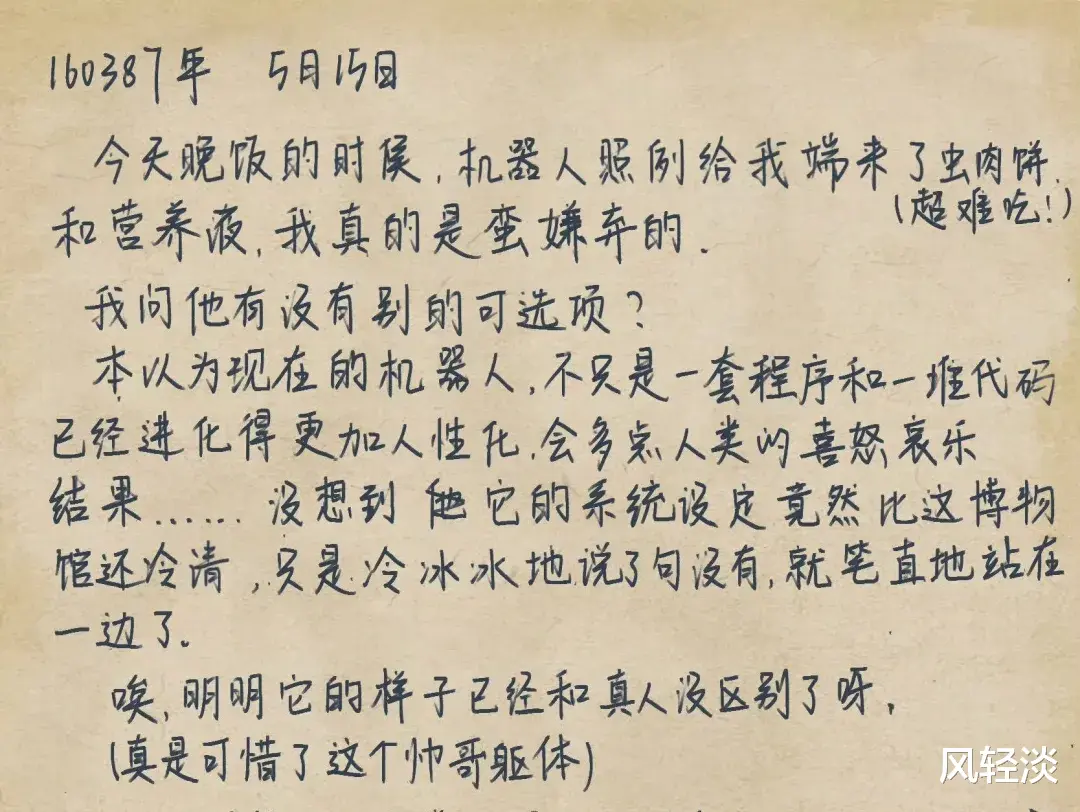 160387年 5月15日
今天晚饭的时侯,机器人照例给我端来了虫肉饼.
(超难吃!)
和营养液,我真的是蛮嫌弃的.
我问他有没有别的可选项?
本以为现在的机器人,不只是一套程序和一堆代码
已经进化得更加人性化,会多点人类的喜怒哀乐
结果...... 没想到 他它的系统设定竟然比这博物
馆还冷清,只是冷冰冰地说了句没有,就笔直地站在
一边了.
唉,明明它的样子已经和真人没区别了呀,
(真是可惜了这个帅哥躯体)
风轻淡